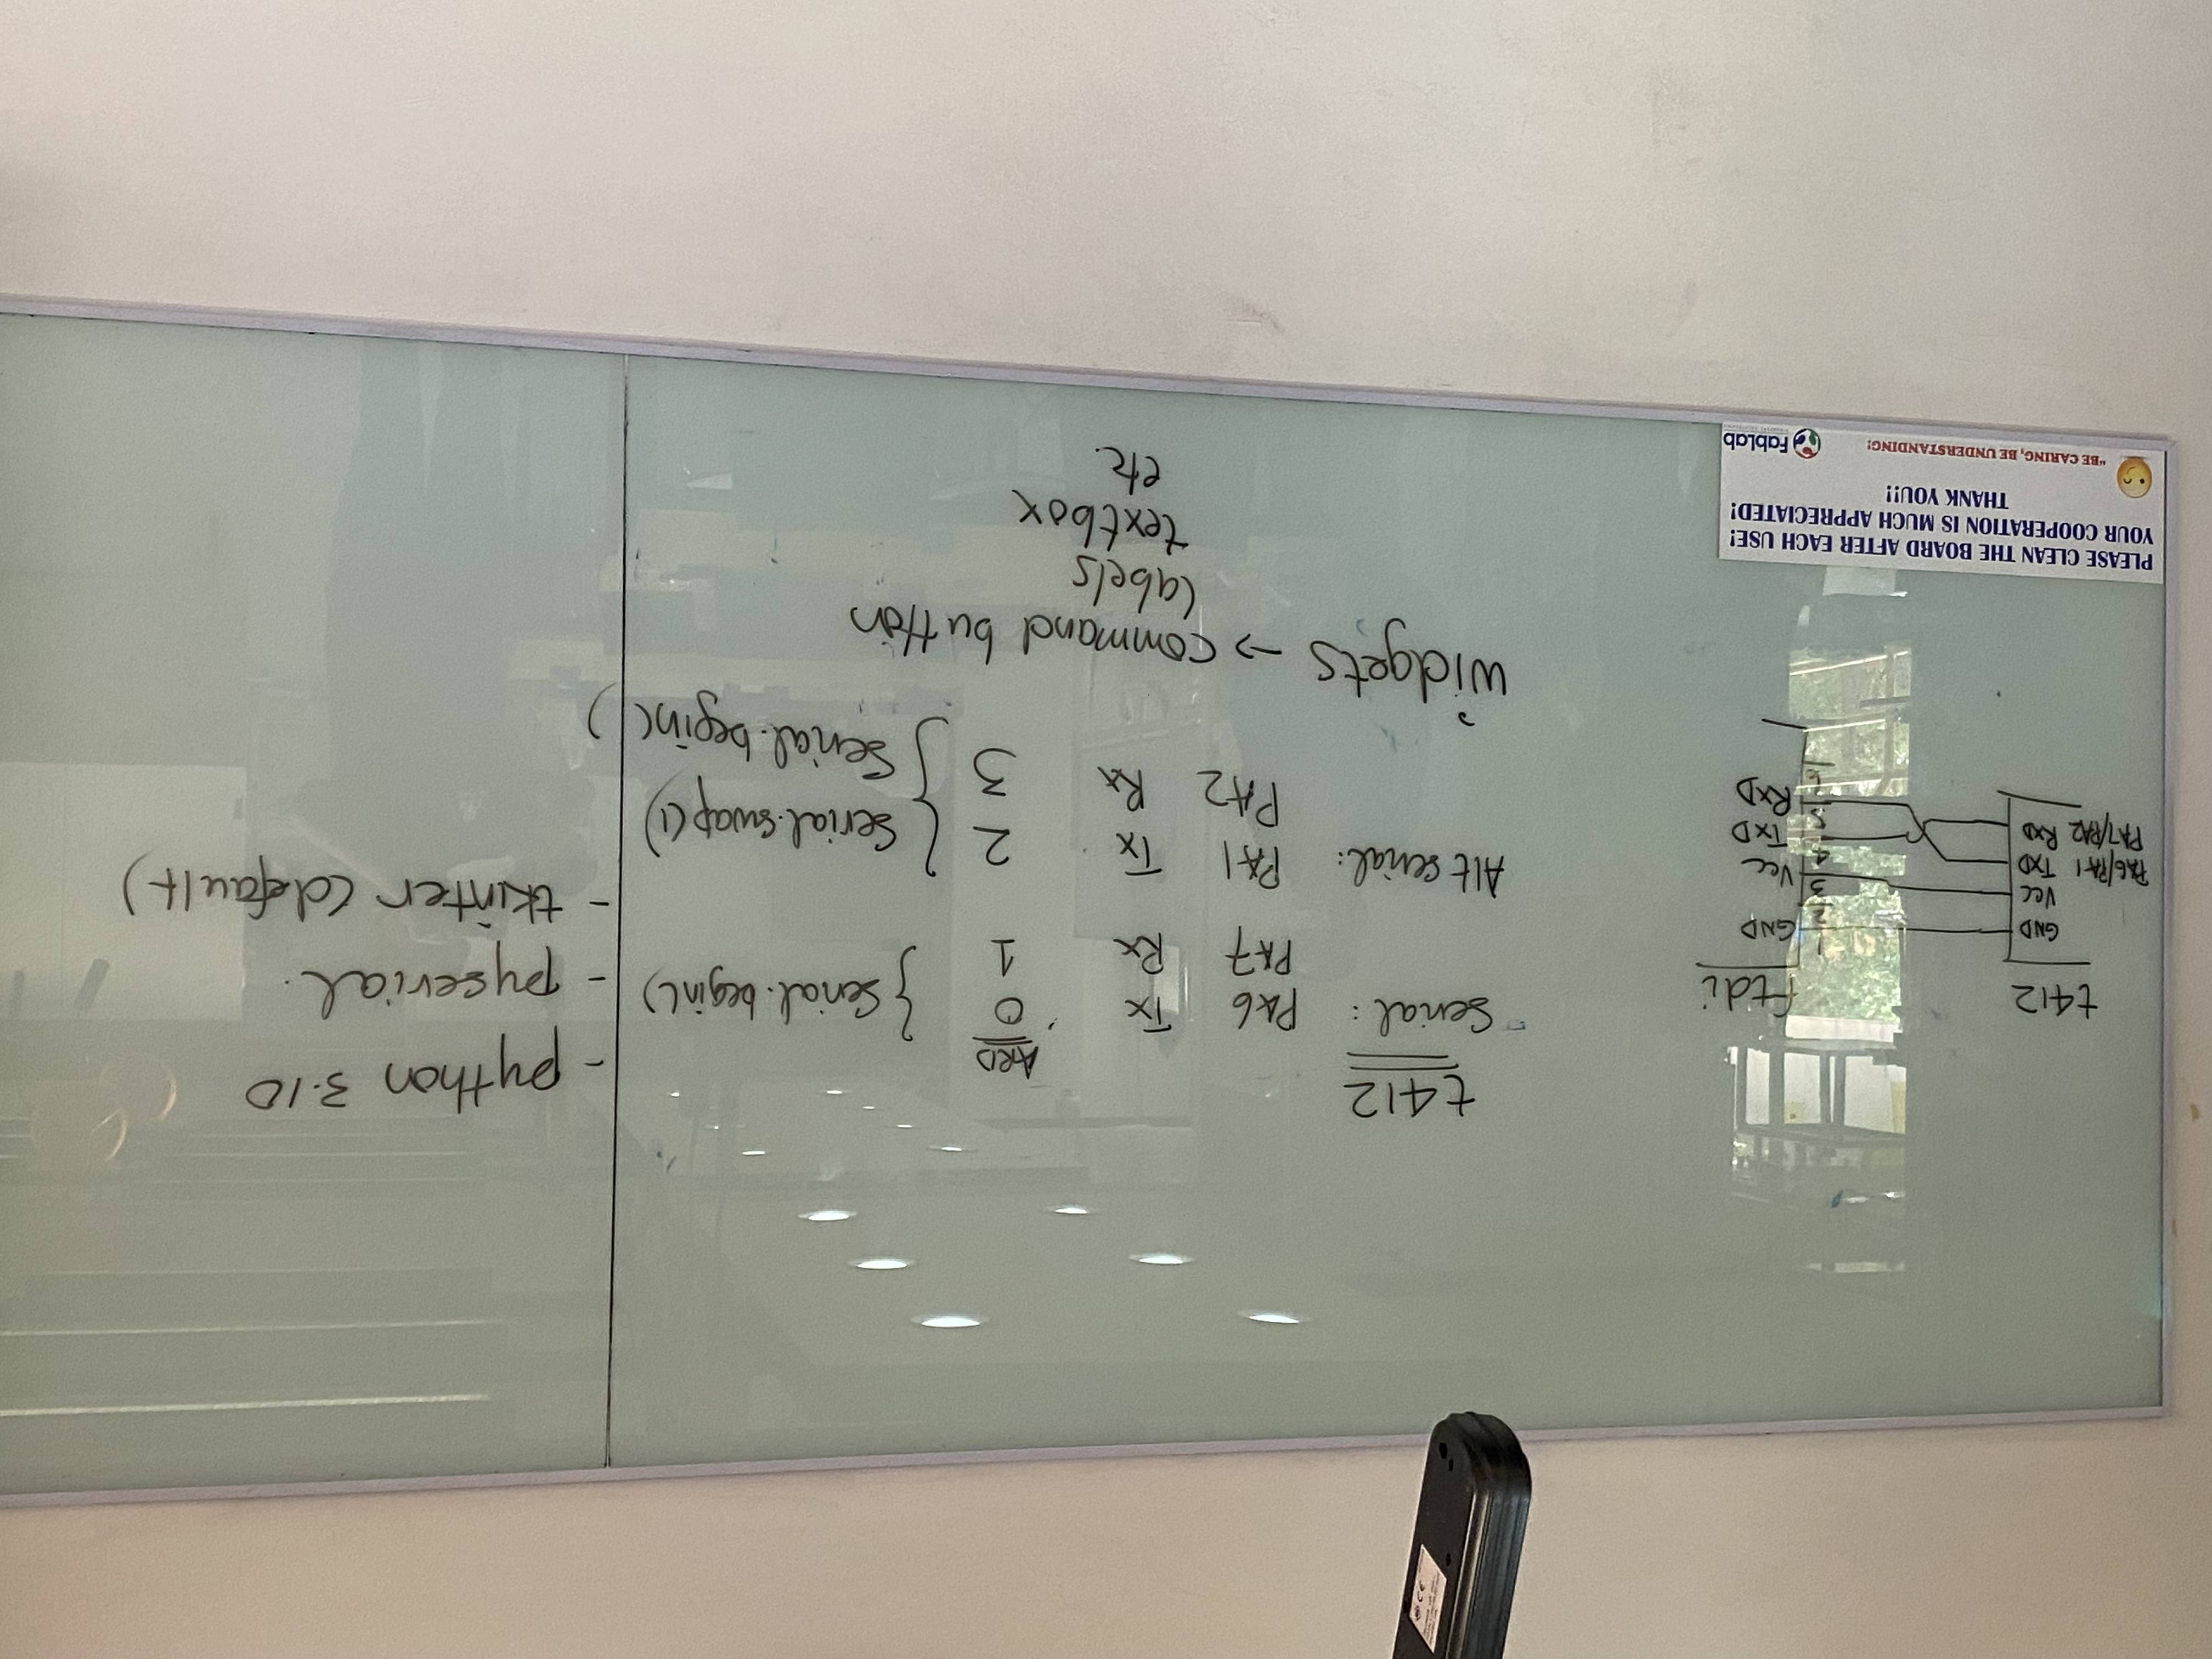 t412
ftdi
GND
Vcc
PA6/PA1 TxD
PA7/PA2 RxD
1
2
3
4
5
6
GND
Vcc
TxD
RxD
t412
ARD
Serial: PA6 Tx 0 } Serial.begin()
PA7 Rx 1
Alt serial: PA1 Tx 2 } Serial.swap(1)
PA2 Rx 3 Serial.begin( )
widgets → command button
labels
textbox
etc.
- python 3.10
- pyserial.
- tkinter (default)
PLEASE CLEAN THE BOARD AFTER EACH USE!
YOUR COOPERATION IS MUCH APPRECIATED!
THANK YOU!!
"BE CARING, BE UNDERSTANDING!
FabLab